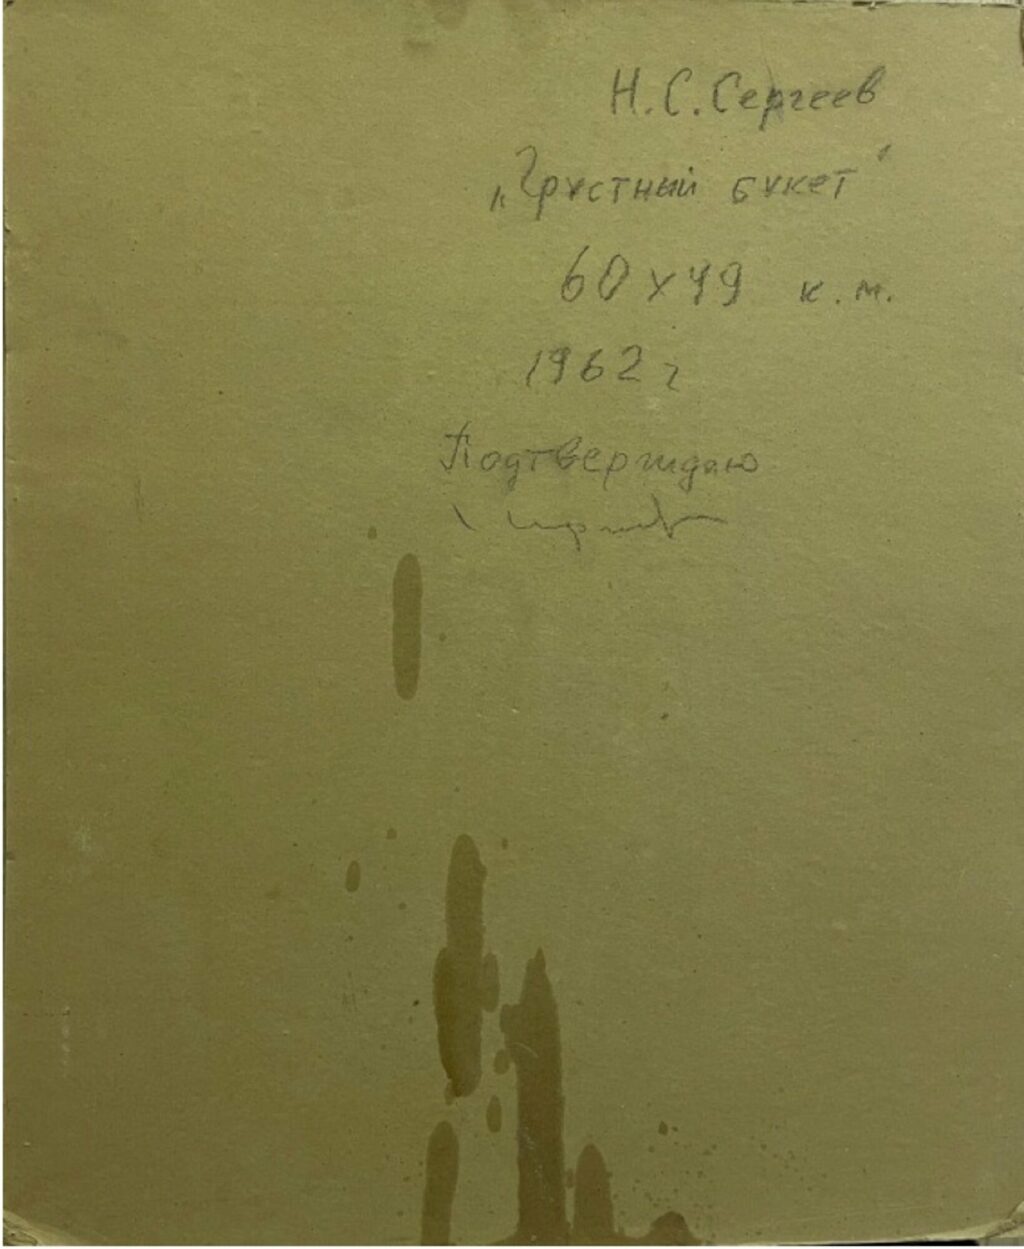 Н.С.Сергеев
„Грустный букет"
60х49 к.м.
1962 г
Подтверждаю